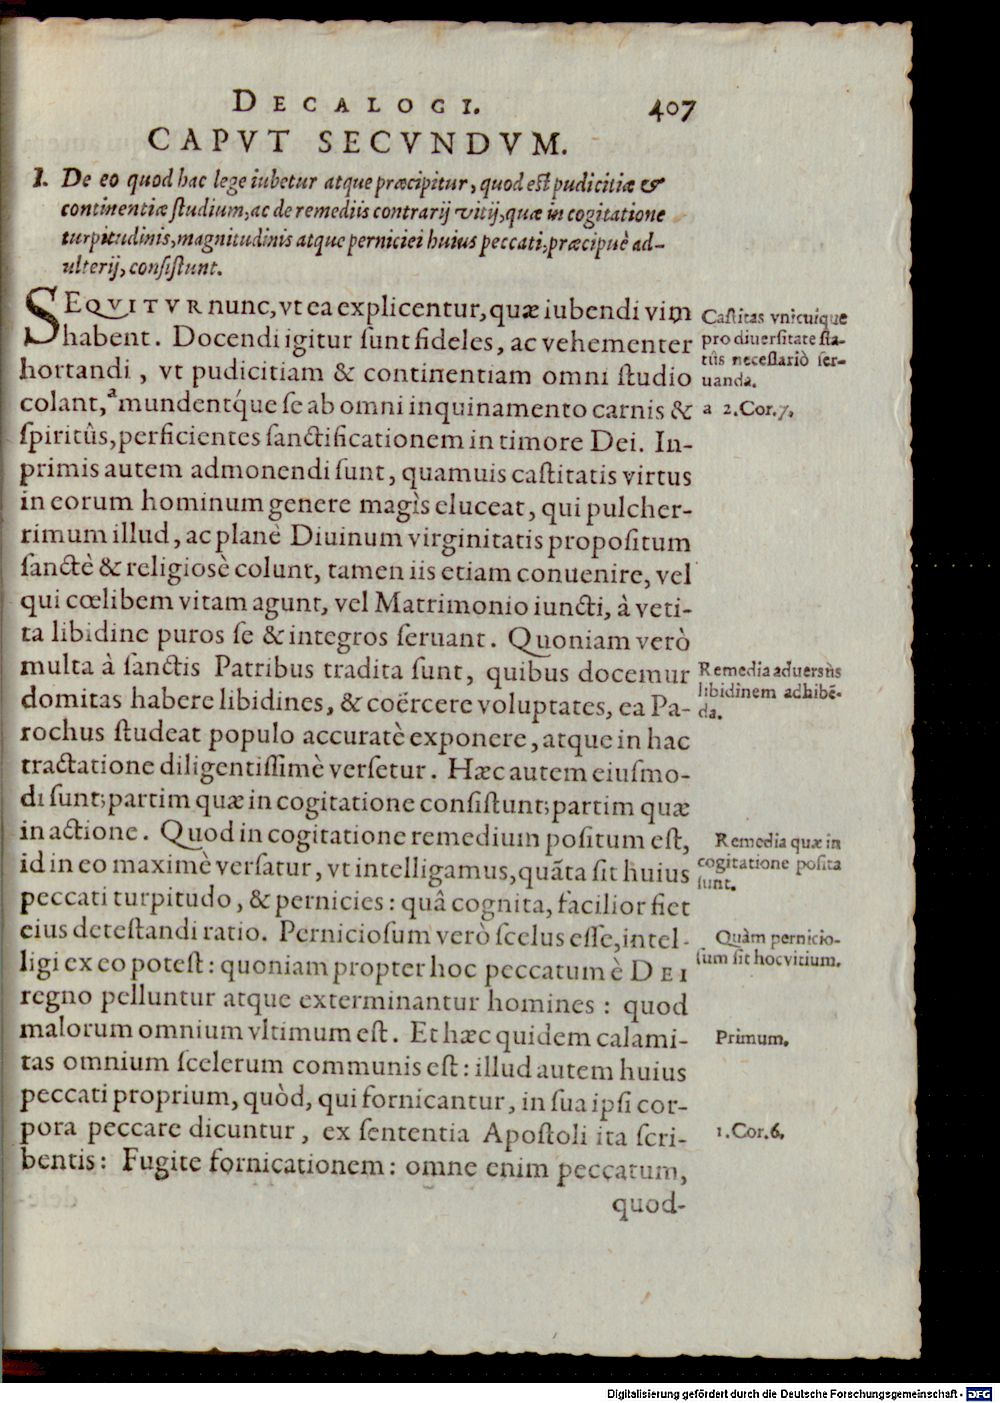 DECALOGI. 407
CAPVT SECVNDVM.
I. De eo quod hac lege iubetur atque præcipitur, quod est pudicitiæ &
continentiæ studium, ac de remediis contrarij vitij, quæ in cogitatione
turpitudinis, magnitudinis atque perniciei huius peccati, præcipuè ad-
ulterij, consistunt.
SEQVITVR nunc, vt ea explicentur, quæ iubendi vim
habent. Docendi igitur sunt fideles, ac vehementer
hortandi, vt pudicitiam & continentiam omni studio
colant, ᵃ mundentq́ue se ab omni inquinamento carnis &
spiritûs, perficientes sanctificationem in timore Dei. In-
primis autem admonendi sunt, quamuis castitatis virtus
in eorum hominum genere magìs eluceat, qui pulcher-
rimum illud, ac planè Diuinum virginitatis propositum
sanctè & religiosè colunt, tamen iis etiam conuenire, vel
qui cœlibem vitam agunt, vel Matrimonio iuncti, à veti-
ta libidine puros se & integros seruant. Quoniam verò
multa à sanctis Patribus tradita sunt, quibus docemur
domitas habere libidines, & coërcere voluptates, ea Pa-
rochus studeat populo accuratè exponere, atque in hac
tractatione diligentissimè versetur. Hæc autem eiusmo-
di sunt; partim quæ in cogitatione consistunt; partim quæ
in actione. Quod in cogitatione remedium positum est,
id in eo maximè versatur, vt intelligamus, quãta sit huius
peccati turpitudo, & pernicies: quâ cognita, facilior fiet
eius detestandi ratio. Perniciosum verò scelus esse, intel-
ligi ex eo potest: quoniam propter hoc peccatum è DEI
regno pelluntur atque exterminantur homines: quod
malorum omnium vltimum est. Et hæc quidem calami-
tas omnium scelerum communis est: illud autem huius
peccati proprium, quòd, qui fornicantur, in sua ipsi cor-
pora peccare dicuntur, ex sententia Apostoli ita scri-
bentis: Fugite fornicationem: omne enim peccatum,
quod-
Castitas vnicuique
pro diuersitate sta-
tûs necessariò ser-
uanda.
a 2.Cor.7.
Remedia aduersùs
libidinem adhibẽ-
da.
Remedia quæ in
cogitatione posita
sunt.
Quàm pernicio-
sum sit hoc vitium.
Primum.
1.Cor.6.
Digitalisierung gefördert durch die Deutsche Forschungsgemeinschaft - DFG